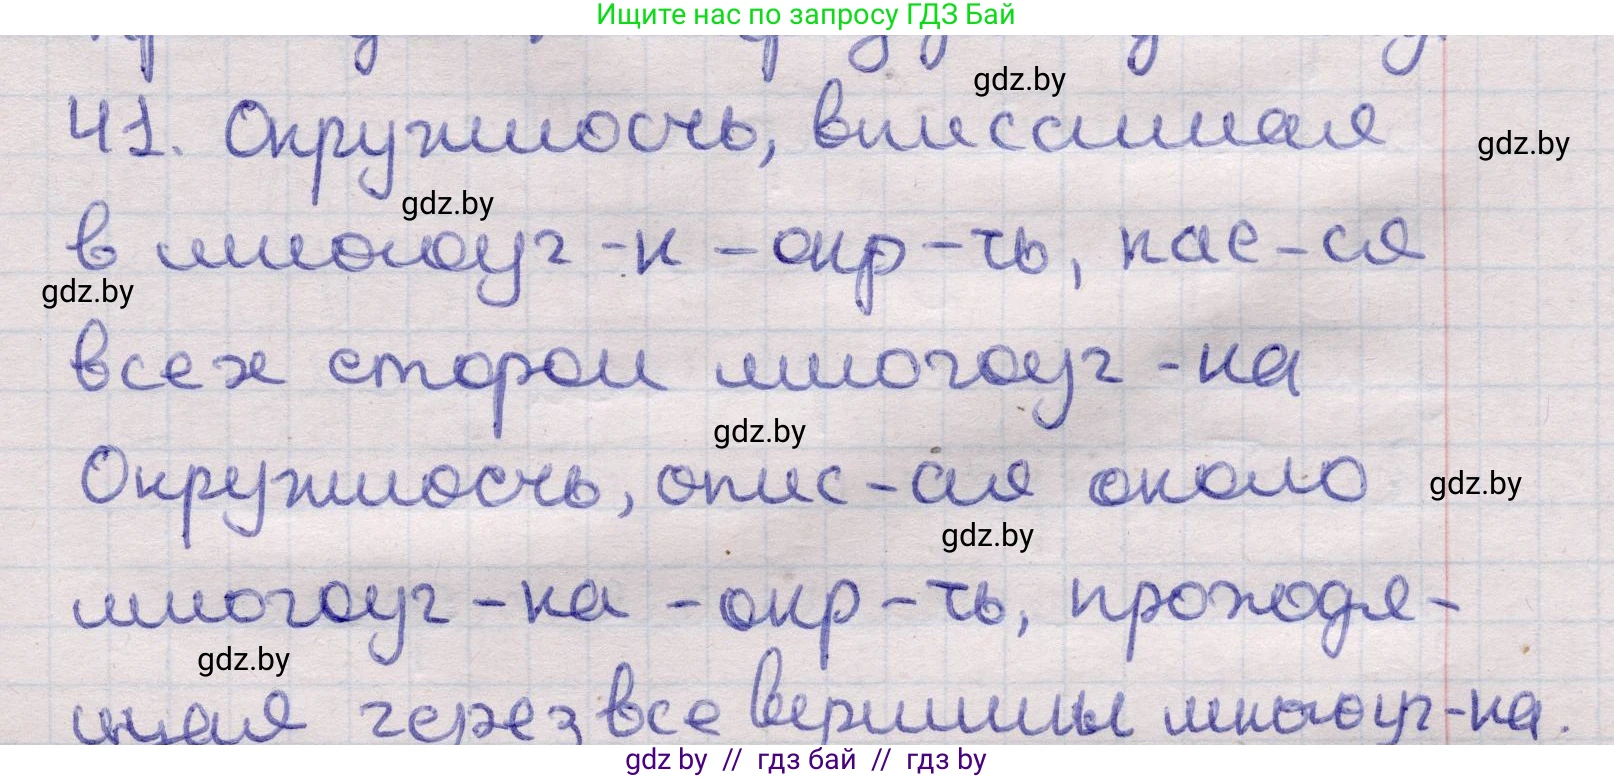 Ищите нас по запросу ГДЗ Бай
gdz.by
41. Окружность, вписанная
gdz.by
gdz.by
в многоуг-к - окр-ть, кас-ся
gdz.by
всех сторон многоуг-ка
gdz.by
Окружность, опис-ая около
gdz.by
gdz.by
многоуг-ка - окр-ть, проходя-
gdz.by
щая через все вершины многоуг-ка.
gdz.by // гдз бай // гдз by